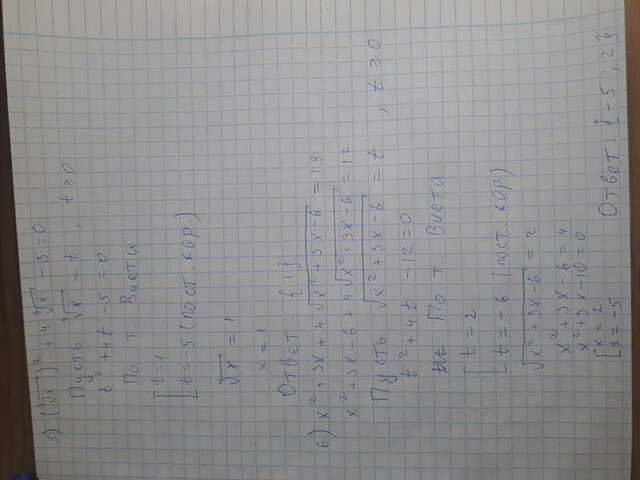 5) (∜x)² + 4∜x - 5 = 0
Пусть ∜x = t , t ≥ 0
t² + 4t - 5 = 0
По т. Виета
[ t = 1
[ t = -5 (пост. кор.)
∜x = 1
x = 1
Ответ: {1}
6) x² + 3x + 4√(x² + 3x - 6) = 18
x² + 3x - 6 + 4√(x² + 3x - 6) = 12
Пусть √(x² + 3x - 6) = t , t ≥ 0
t² + 4t - 12 = 0
По т. Виета
[ t = 2
[ t = -6 (пост. кор.)
√(x² + 3x - 6) = 2
x² + 3x - 6 = 4
x² + 3x - 10 = 0
[ x = 2
[ x = -5 Ответ: {-5 ; 2}